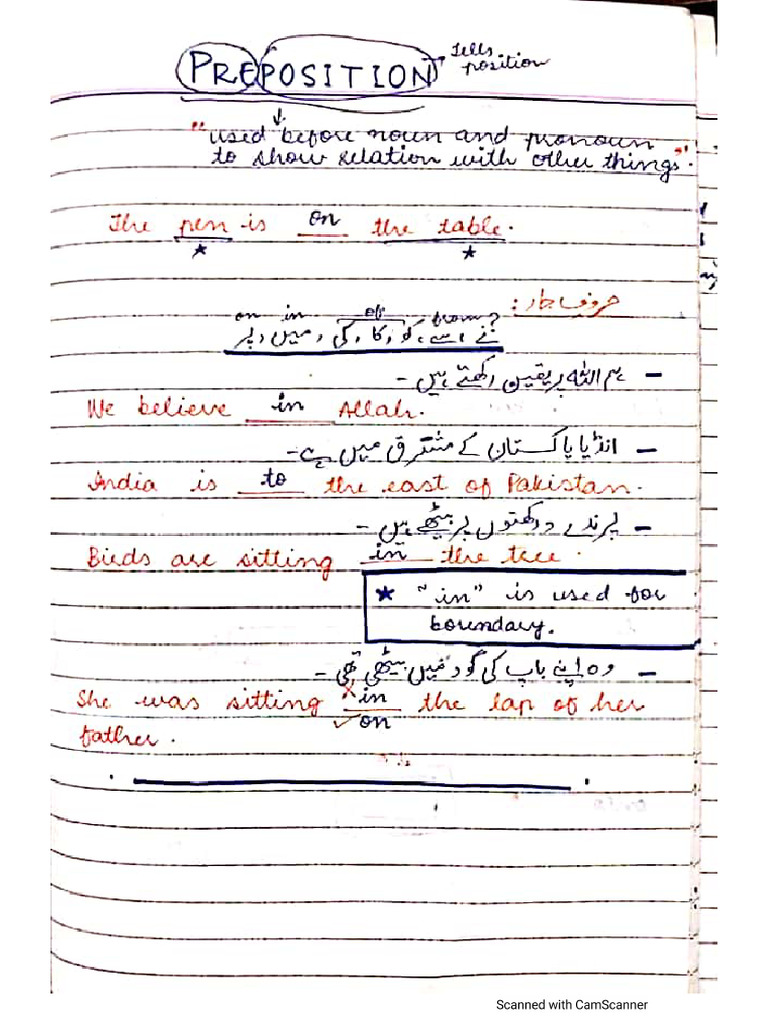 PREPOSITION
Tells
position
"used before noun and pronoun
to show relation with other things".
The pen is on the table.
حروف جار:
on in of from
نے، سے، کو، کا، کی، میں، پر
– ہم اللہ پر یقین رکھتے ہیں -
We believe in Allah.
– انڈیا پاکستان کے مشرق میں ہے -
India is to the east of Pakistan.
– پرندے درختوں پر بیٹھے ہیں -
Birds are sitting in the tree.
★ "in" is used for
boundary.
– وہ اپنے باپ کی گود میں بیٹھی تھی -
She was sitting in the lap of her
on
father.
Scanned with CamScanner